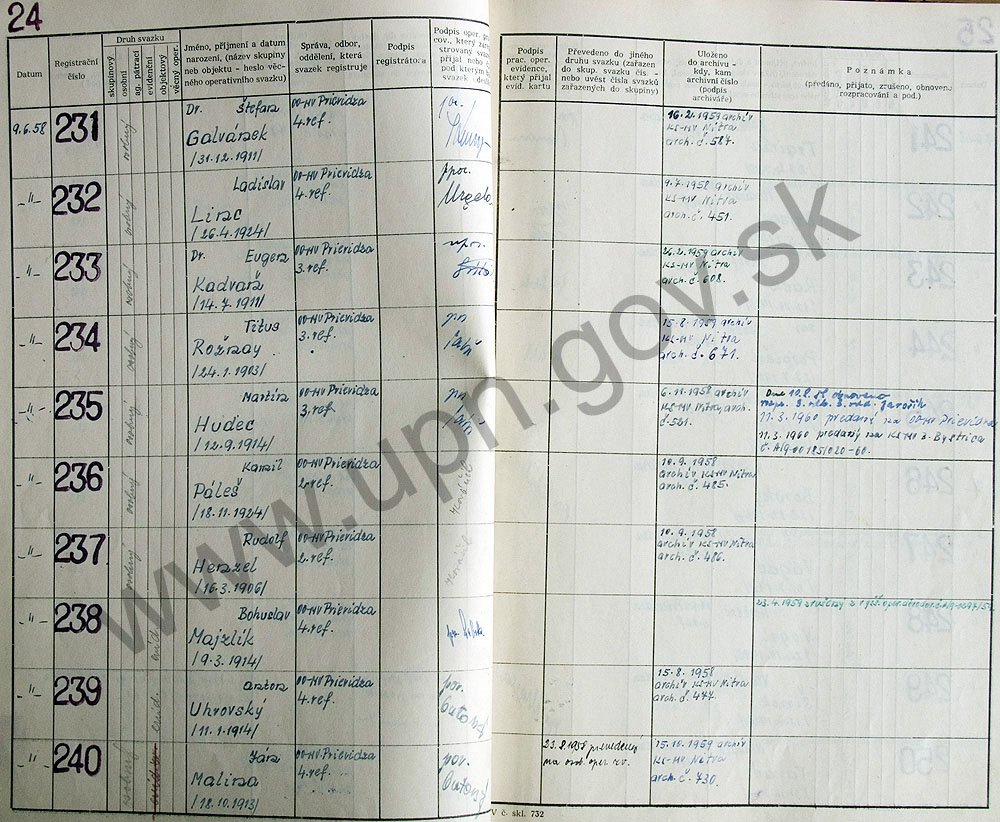 24
Datum
Registrační číslo
Druh svazku
skupinový
osobní
ag. pátrací
evidenční
objektový
věcný oper.
Jméno, příjmení a datum
narození, (název skupiny
neb objektu - heslo věc-
ného operativního svazku)
Správa, odbor,
oddělení, která
svazek registruje
Podpis
registrátora
Podpis oper.
Podpis
prac. oper.
evidence,
který přijal
evid. kartu
Převedeno do jiného
druhu svazku (zařazen
do skup. svazku čís. -
nebo uvést čísla svazků
zařazených do skupiny)
Uloženo
do archivu -
kdy, kam
archivní číslo
(podpis
archiváře)
Poznámka
(předáno, přijato, zrušeno, obnoveno
rozpracování a pod.)
9.6.58 231 osobný Dr. Štefan OO-MV Prievidza 16.2.1959 archív
Galvánek 4.ref. KS-MV Nitra
/31.12.1911/ arch. č. 587.
-"- 232 osobný Ladislav OO-MV Prievidza 9.7.1958 archív
Linc 4.ref. KS-MV Nitra
/26.4.1924/ arch. č. 451.
-"- 233 osobný Dr. Eugen OO-MV Prievidza 26.2.1959 archív
Kadvaň 3.ref. KS-MV Nitra
/14.7.1911/ arch. č. 608.
-"- 234 osobný Titus OO-MV Prievidza 15.8.1959 archív
Rožnay 3.ref. KS-MV Nitra
/24.1.1903/ arch. č. 671.
-"- 235 osobný Martin OO-MV Prievidza 6.11.1958 archív
Hudec 3.ref. KS-MV Nitra, arch.
/12.9.1914/ č. 521.
11.3.1960 predaný na OO-MV Prievidza
11.3.1960 predaný na KS-MV B. Bystrica
-"- 236 osobný Kamil OO-MV Prievidza 10.9.1958
Páleš 2.ref. archív KS-MV Nitra
/18.11.1924/ arch. č. 485.
-"- 237 osobný Rudolf OO-MV Prievidza 10.9.1958
Henzel 2.ref. archív KS-MV Nitra
/16.3.1906/ arch. č. 486.
-"- 238 evid. Bohuslav OO-MV Prievidza
Majzlík 4.ref.
/9.3.1914/
23.4.1959 zrušený
-"- 239 evid. Anton OO-MV Prievidza 15.8.1958
Uhrovský 4.ref. archív KS-MV Nitra
/11.1.1914/ arch. č. 477.
-"- 240 osobný Ján OO-MV Prievidza 23.8.1958 prevedený 15.10.1959 archív
Malina 4.ref. na osob. oper. KS-MV Nitra
/18.10.1913/ arch. č. 730.
V č. skl. 732
www.upn.gov.sk